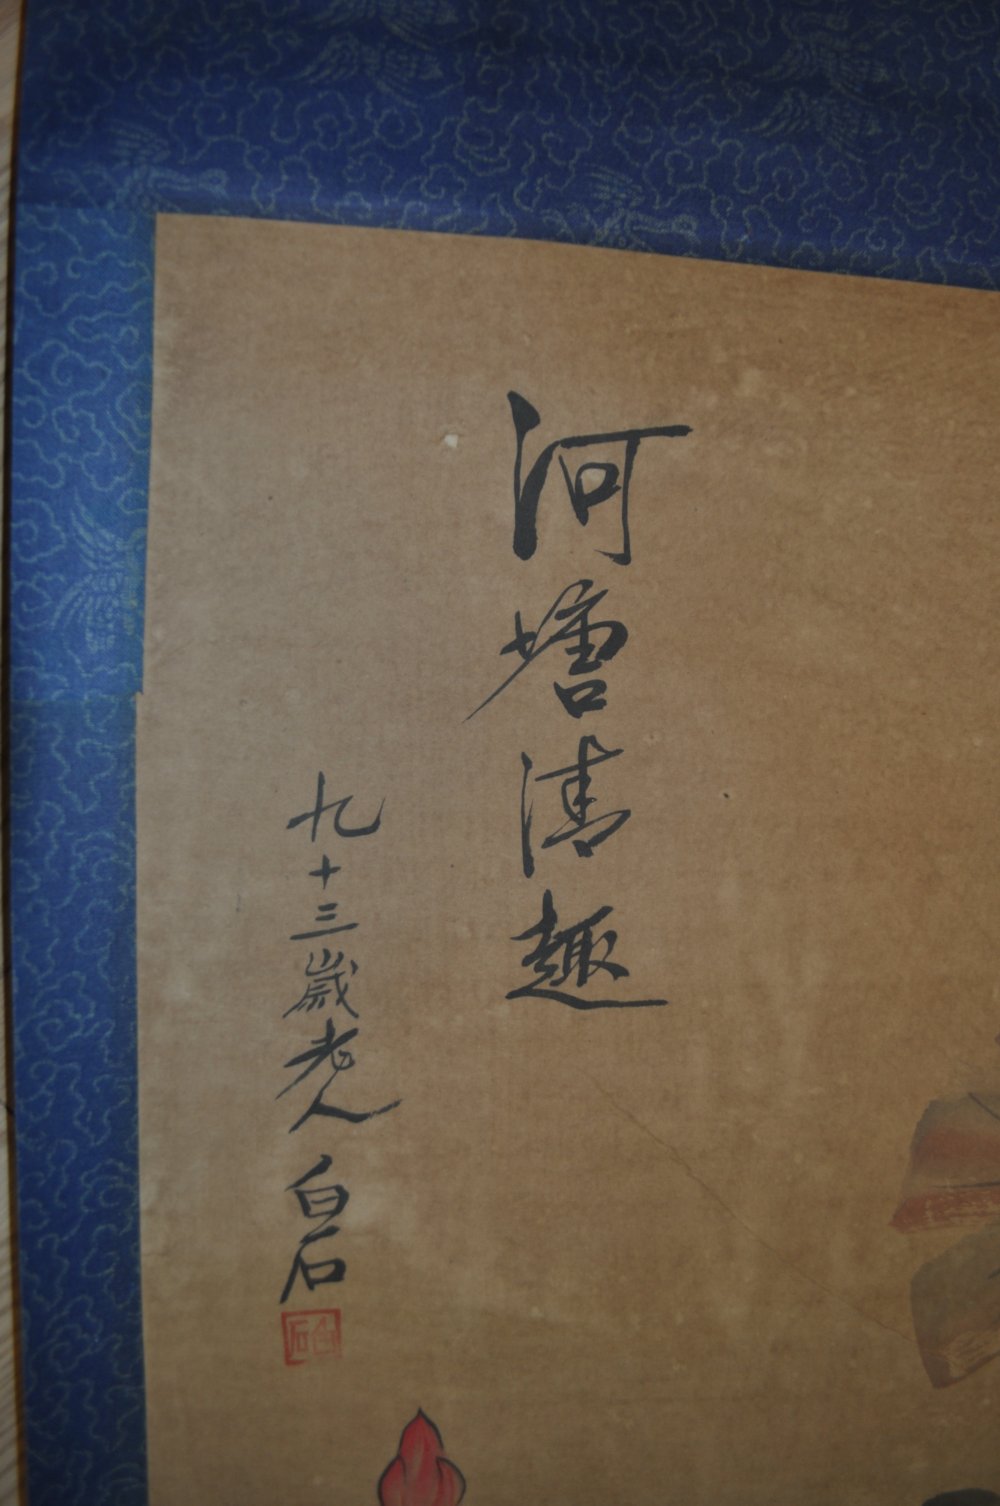 河塘清趣
九十三歲老人白石
白石